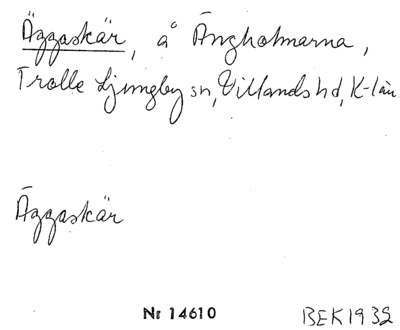 Äggaskär, å Ängholmarna,
Trolle Ljungby sn, Villands hd, K-län
Äggaskär
Nr 14610 BEK1932